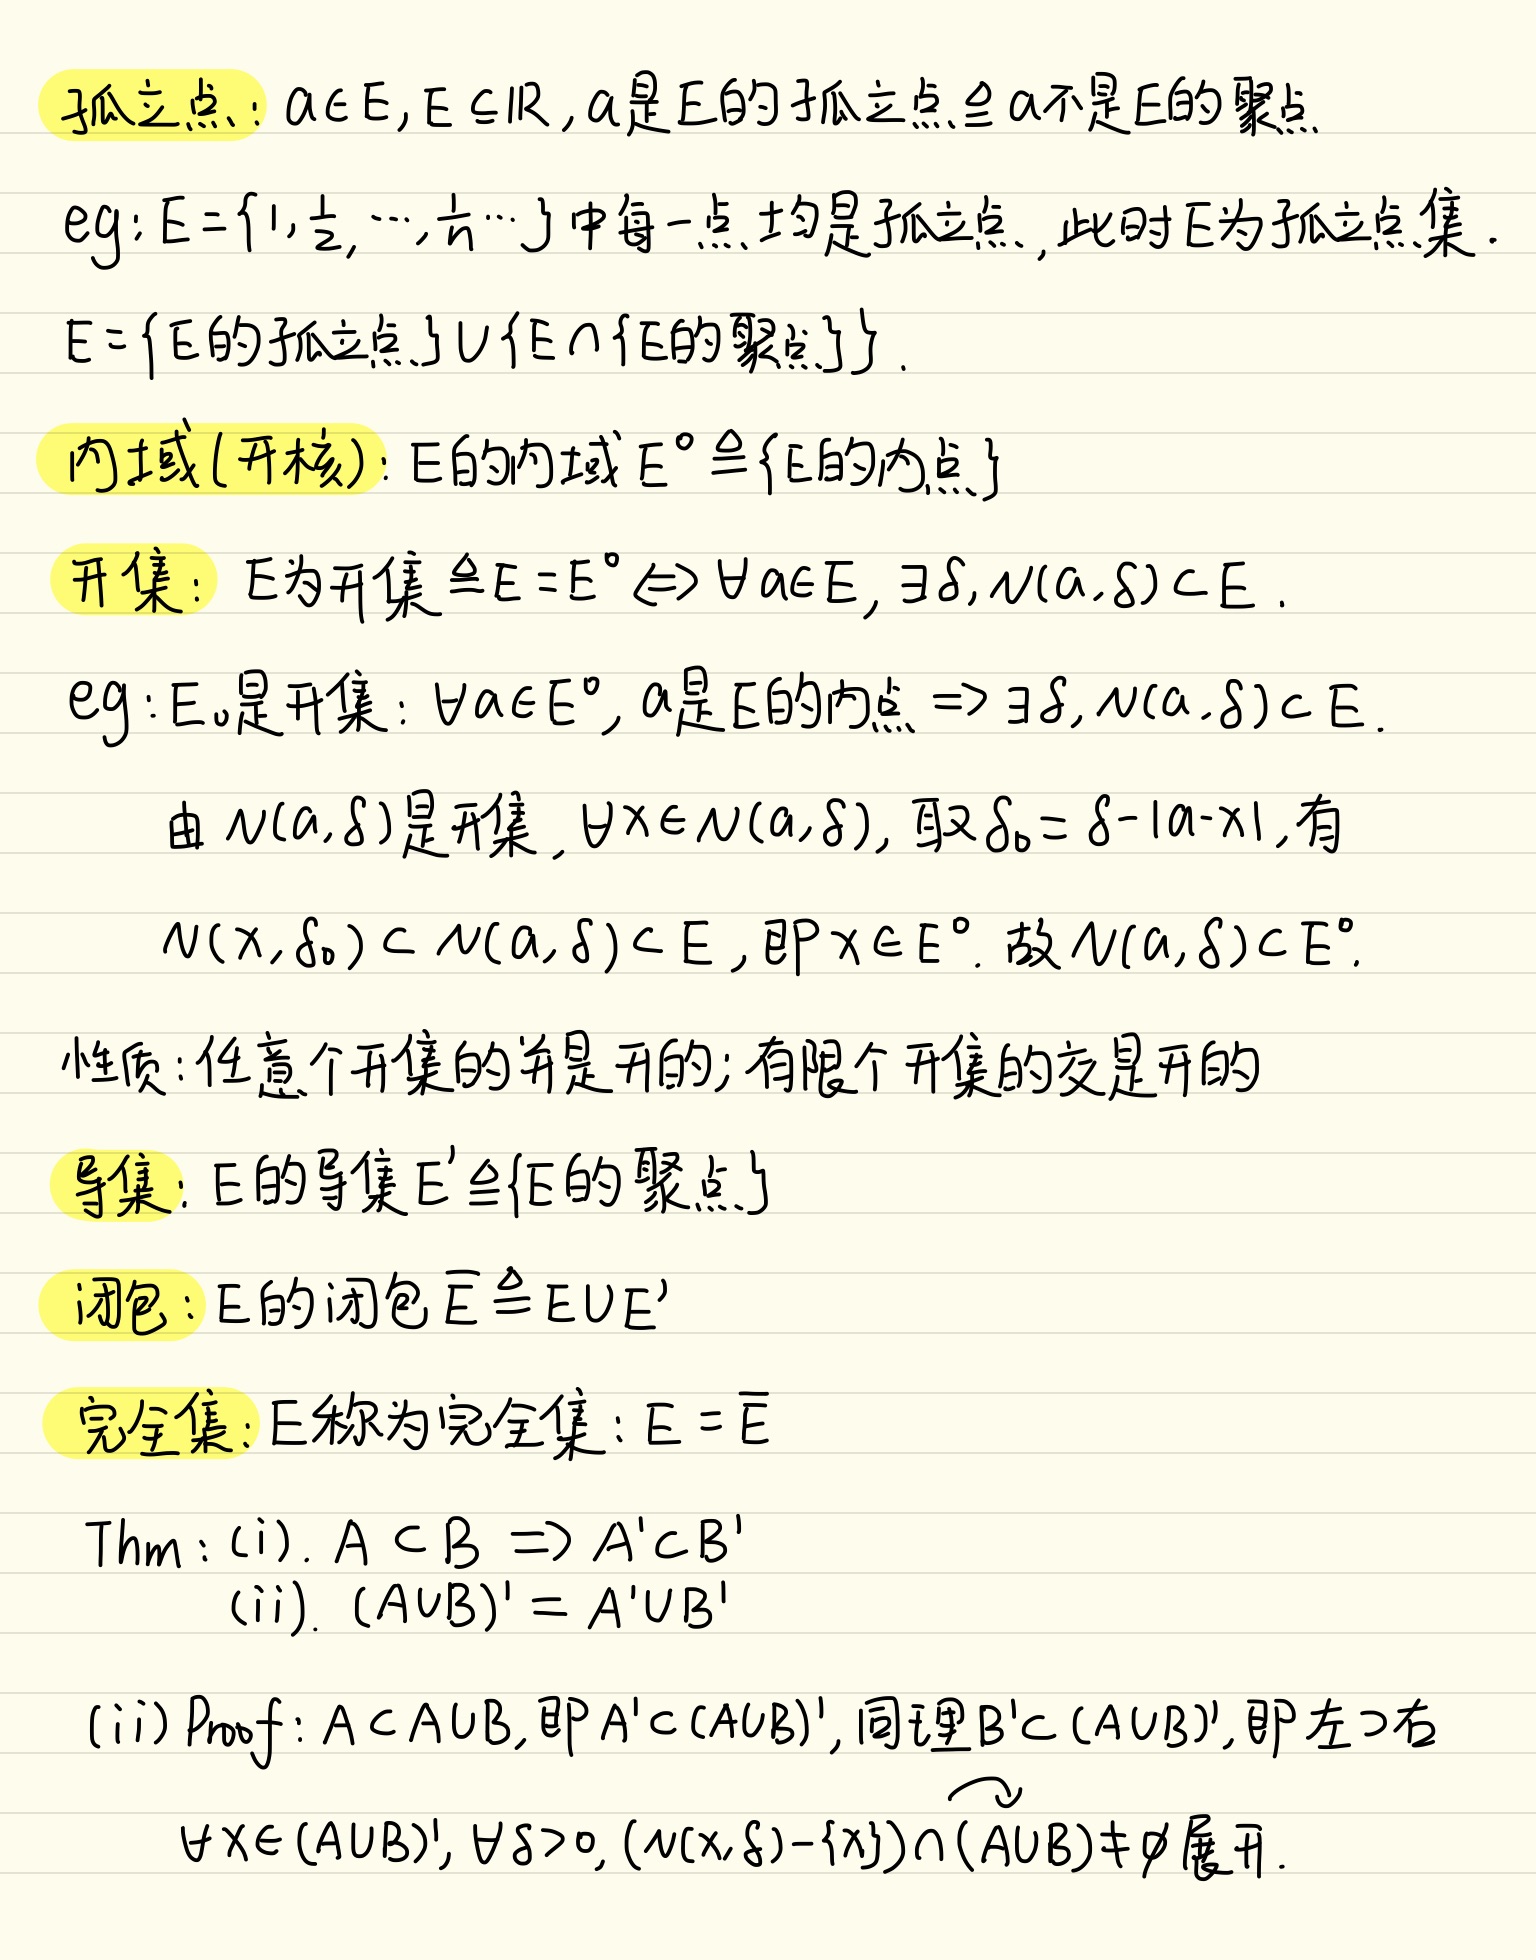 孤立点: a∈E, E⊆ℝ, a是E的孤立点≜a不是E的聚点
eg: E={1, 1/2, …, 1/n …}中每一点均是孤立点, 此时E为孤立点集.
E={E的孤立点}∪{E∩{E的聚点}}.
内域(开核): E的内域E°≜{E的内点}
开集: E为开集≜E=E°⇔∀a∈E, ∃δ, N(a,δ)⊂E.
eg: E₀是开集: ∀a∈E°, a是E的内点⇒∃δ, N(a,δ)⊂E.
由N(a,δ)是开集, ∀x∈N(a,δ), 取δ₀=δ-|a-x|, 有
N(x,δ₀)⊂N(a,δ)⊂E, 即x∈E°. 故N(a,δ)⊂E°.
性质: 任意个开集的并是开的; 有限个开集的交是开的
导集: E的导集E'≜{E的聚点}
闭包: E的闭包E̅≜E∪E'
完全集: E称为完全集: E=E̅
Thm: (i). A⊂B ⇒ A'⊂B'
(ii). (A∪B)'=A'∪B'
(ii) Proof: A⊂A∪B, 即A'⊂(A∪B)', 同理B'⊂(A∪B)', 即左⊃右
∀x∈(A∪B)', ∀δ>0, (N(x,δ)-{x})∩(A∪B)≠∅展开.